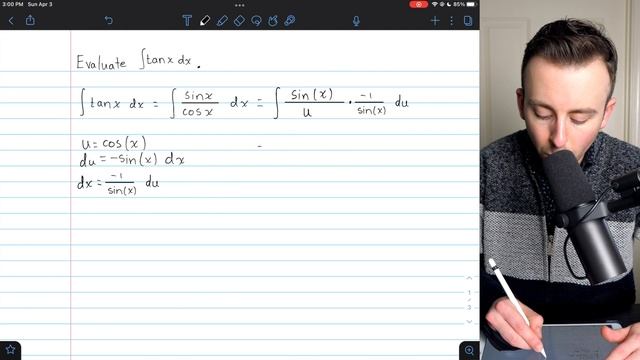 3:00 PM Sun Apr 3
85%
T
Evaluate ∫tanx dx.
∫tanx dx = ∫ sinx/cosx dx = ∫ sin(x)/u · -1/sin(x) du
u = cos(x) =
du = -sin(x) dx
dx = -1/sin(x) du
1
/
3